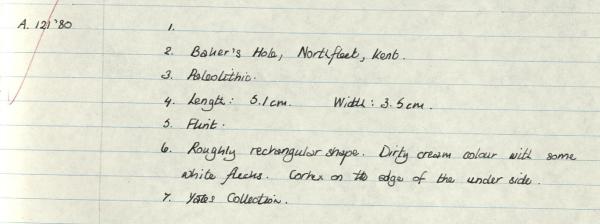 A. 121 '80
1.
2. Baker's Hole, Northfleet, Kent.
3. Paleolithic.
4. Length: 5.1cm. Width: 3.5cm.
5. Flint.
6. Roughly rectangular shape. Dirty cream colour with some
white flecks. Cortex on the edge of the under side.
7. Yates Collection.